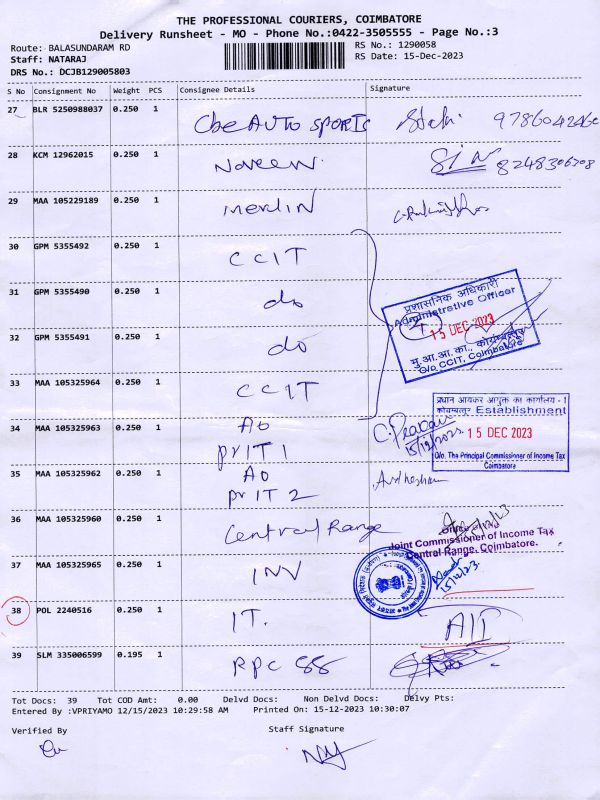 THE PROFESSIONAL COURIERS, COIMBATORE
Delivery Runsheet - MO - Phone No.:0422-3505555 - Page No.:3
Route: BALASUNDARAM RD
Staff: NATARAJ
DRS No.: DCJB129005803
RS No.: 1290058
RS Date: 15-Dec-2023
S No Consignment No Weight PCS Consignee Details Signature
27 BLR 5250988037 0.250 1 Cbe AUTO SPORTS
28 KCM 12962015 0.250 1 Naveen. 8248306708
29 MAA 105229189 0.250 1 Merlin
30 GPM 5355492 0.250 1 CCIT
31 GPM 5355490 0.250 1 do
32 GPM 5355491 0.250 1 do
प्रशासनिक अधिकारी
Administrative Officer
15 DEC 2023
मु.आ.आ.का., कोयम्बत्तूर
O/o CCIT, Coimbatore
33 MAA 105325964 0.250 1 CCIT
34 MAA 105325963 0.250 1 AO
Pr IT 1
15/12/2023
प्रधान आयकर आयुक्त का कार्यालय - 1
कोयम्बत्तूर Establishment
15 DEC 2023
O/o. The Principal Commissioner of Income Tax
Coimbatore
35 MAA 105325962 0.250 1 AO
Pr IT 2
36 MAA 105325960 0.250 1 Central Range
Office of the
Joint Commissioner of Income Tax
Central Range, Coimbatore.
37 MAA 105325965 0.250 1 INV
15/12/23
38 POL 2240516 0.250 1 IT.
39 SLM 335006599 0.195 1 RPC 88
Tot Docs: 39 Tot COD Amt: 0.00 Delvd Docs: Non Delvd Docs: Delvy Pts:
Entered By :VPRIYAMO 12/15/2023 10:29:58 AM Printed On: 15-12-2023 10:30:07
Verified By Staff Signature